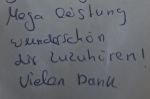 Mega Leistung
wunderschön
dir zuzuhören!
Vielen Dank